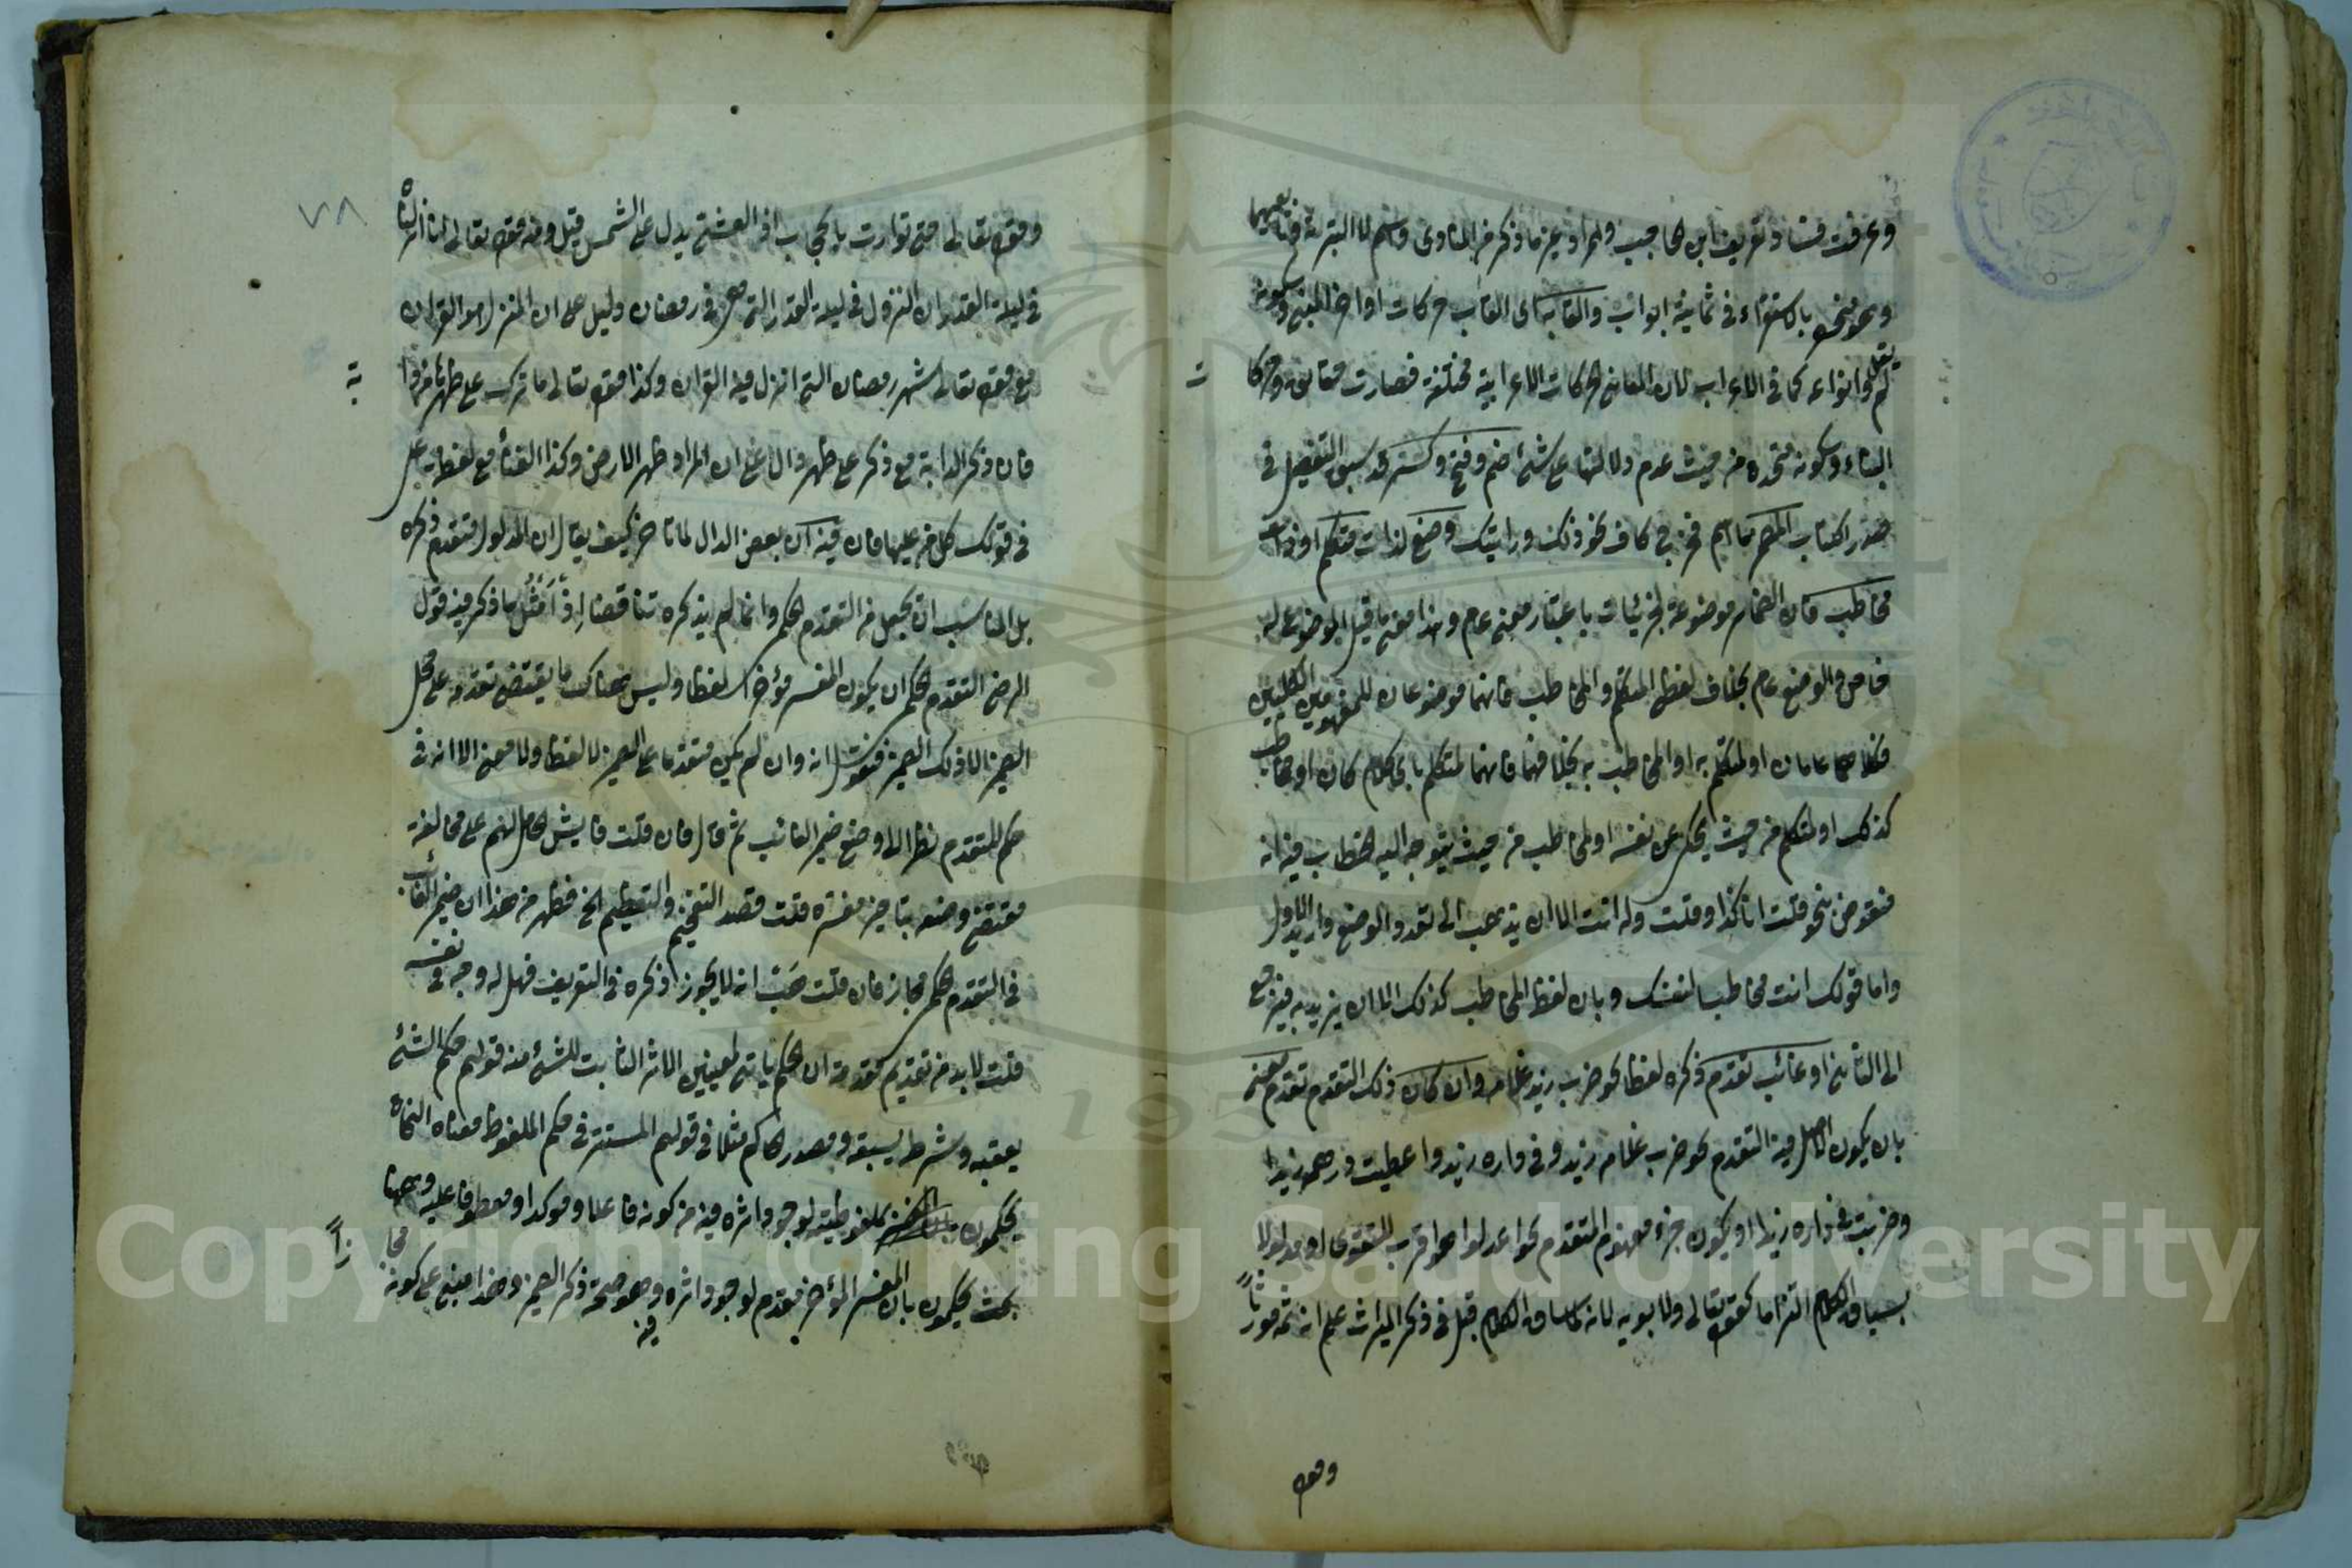 وعرفت فساد تعريف ابن الحاجب ولم ار غير ما ذكر من المناوى
وهو منحصر بالاستقراء فى ثمانية ابواب والقابه اى القاب حركات اواخر المبنى وسكونه
لم يقل وانواعه كما فى الاعراب لان المعانى الحركات الاعرابية مختلفة فصارت
البناء وسكونه متحدة من حيث عدم دلالتها على شئ ضم وفتح وكسر قد سبق التفصيل فى
صدر الكتاب المضمر ما اسم فخرج كاف نحو ذلك ورايتك وضع لذات متكلم او ذات
مخاطب فان الضمائر موضوعة لجزئيات باعتبار معنى عام وهذا معنى ما قيل الموضوع له
خاص والوضع عام بخلاف لفظ المتكلم والمخاطب فانهما موضوعان للمفهومين الكليين
فكلاهما عامان او لمتكلم به او المخاطب به بخلافهما فانهما لمتكلم باى كلام كان او مخاطب
كذلك او لمتكلم من حيث يحكى عن نفسه او لمخاطب من حيث يتوجه اليه الخطاب فيه انه
منقوض بنحو قلت انا كذا وقلت له انت الا ان يذهب الى تعدد الوضع واريد الاول
واما قولك انت مخاطبا لنفسك وبان لفظ المخاطب كذلك الا ان يزيد به فيرجع
الى الثانى او غائب تقدم ذكره لفظا نحو ضرب زيد غلامه وان كان ذلك التقدم تقدم معنى
بان يكون الاصل فيه التقدم نحو ضرب غلامه زيد وفى داره زيد واعطيت درهمه زيدا
وضربت فى داره زيدا او يكون جزء مفهوم المتقدم نحو اعدلوا هو اقرب للتقوى او مدلولا
بسياق الكلام التزاما كقوله تعالى ولابويه لانه لما ساق الكلام قبل فى ذكر الميراث علم ان ثمه مورثا
وقوله
٧٨
وقوله تعالى حتى توارت بالحجاب اذ العشى يدل على الشمس قيل ومنه قوله تعالى انا انزلناه
فى ليلة القدر ان النزول فى ليلة القدر التى هى فى رمضان دليل على ان المنزل هو القران
مع قوله تعالى شهر رمضان الذى انزل فيه القران وكذا قوله تعالى ما ترك على ظهرها من دابة
فان ذكر الدابة مع ذكر على ظهر دال على ان المراد ظهر الارض وكذا الفناء مع لفظة على
فى قولك كل من عليها فان فيه ان بعض الدال لما تاخر كيف يقال ان المدلول متقدم ذكره
بل المناسب ان يجعل من التقدم الحكمى وانما لم يذكره تناقضا اذ امثل ما ذكر فيه قول
الرضى التقدم الحكمى ان يكون المفسر مؤخرا لفظا وليس هناك ما يقتضى تقدمه على محل
الضمير الا ذلك الضمير فنقول انه وان لم يكن متقدما على الضمير لا لفظا ولا معنى الا انه فى
حكم المتقدم نظرا الى وضع ضمير الغائب ثم قال فان قلت فايش الحامل لهم على مخالفة
مقتضى وضعه بتاخير مفسره قلت قصد التفخيم والتعظيم الخ فظهر من هذا ان ضمير الغائب
فى المتقدم الحكمى مجاز فان قلت هب انه لا يجوز ذكره فى التعريف فهل له وجه فى نفسه
قلت لابد من تقديم مقدمة ان الحكم ياتى لمعنيين الاثر الثابت للشئ منه قولهم حكم الشئ
يعقبه وشرطه يسبقه ومصدر الحاكم مثلا فى قولهم المستتر فى حكم الملفوظ معناه النحاة
يحكمون بملفوظيته لوجود اثره فيه من كونه فاعلا ومؤكدا ومعطوفا عليه وههنا
بحث يحكمون بان المفسر المؤخر مقدم لوجود اثره فيه وهو صحة ذكر الضمير وهذا مبنى على كونه مجازا
Copyright © King Saud University
195